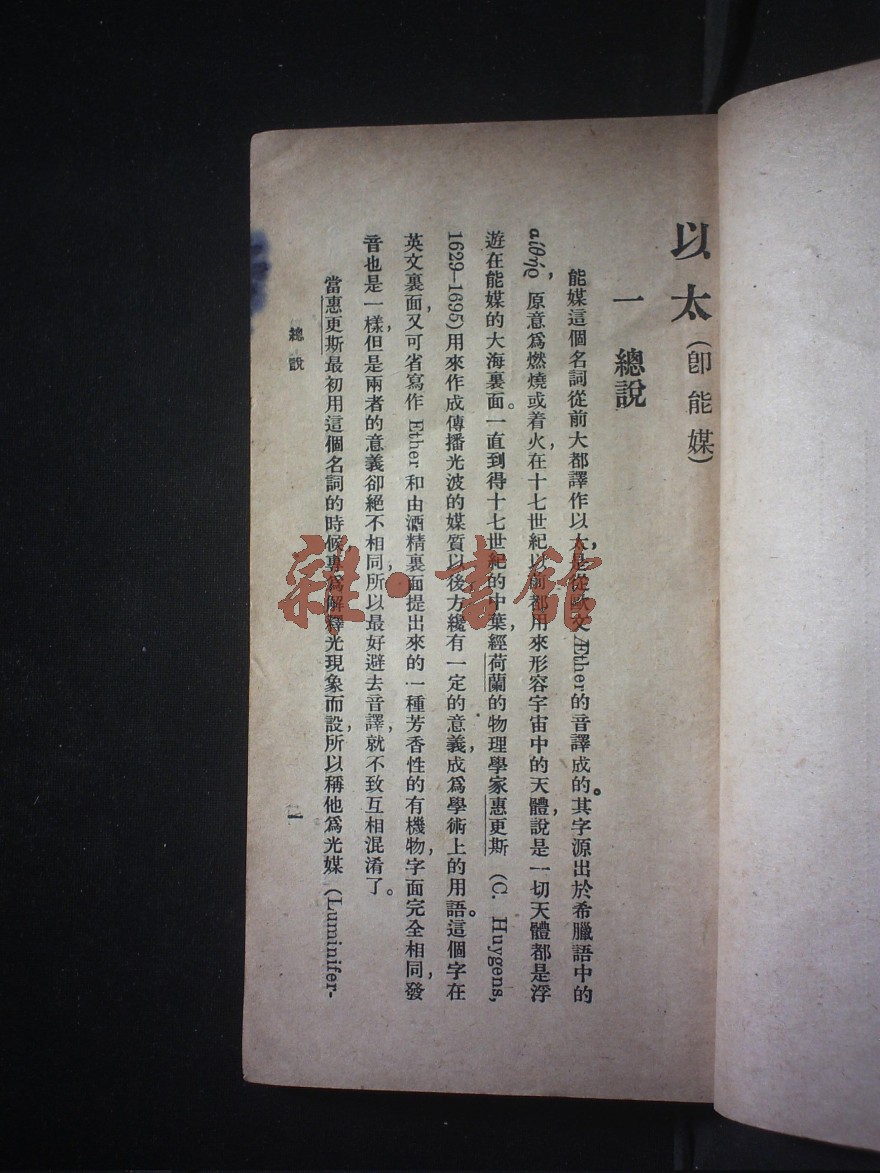 以太(卽能媒)
一 總說
能媒這個名詞從前大都譯作以太,是從歐文Æther的音譯成的。其字源出於希臘語中的
αἰθήρ,原意爲燃燒或着火,在十七世紀以前都用來形容宇宙中的天體,說是一切天體都是浮
遊在能媒的大海裏面。一直到得十七世紀的中葉,經荷蘭的物理學家惠更斯(C. Huygens,
1629–1695)用來作成傳播光波的媒質,以後方纔有一定的意義,成爲學術上的用語。這個字在
英文裏面,又可省寫作 Ether 和由酒精裏面提出來的一種芳香性的有機物,字面完全相同,發
音也是一樣,但是兩者的意義卻絕不相同,所以最好避去音譯,就不致互相混淆了。
當惠更斯最初用這個名詞的時候,專爲解釋光現象而設,所以稱他爲光媒 (Luminifer-
總說
一
雜·書館